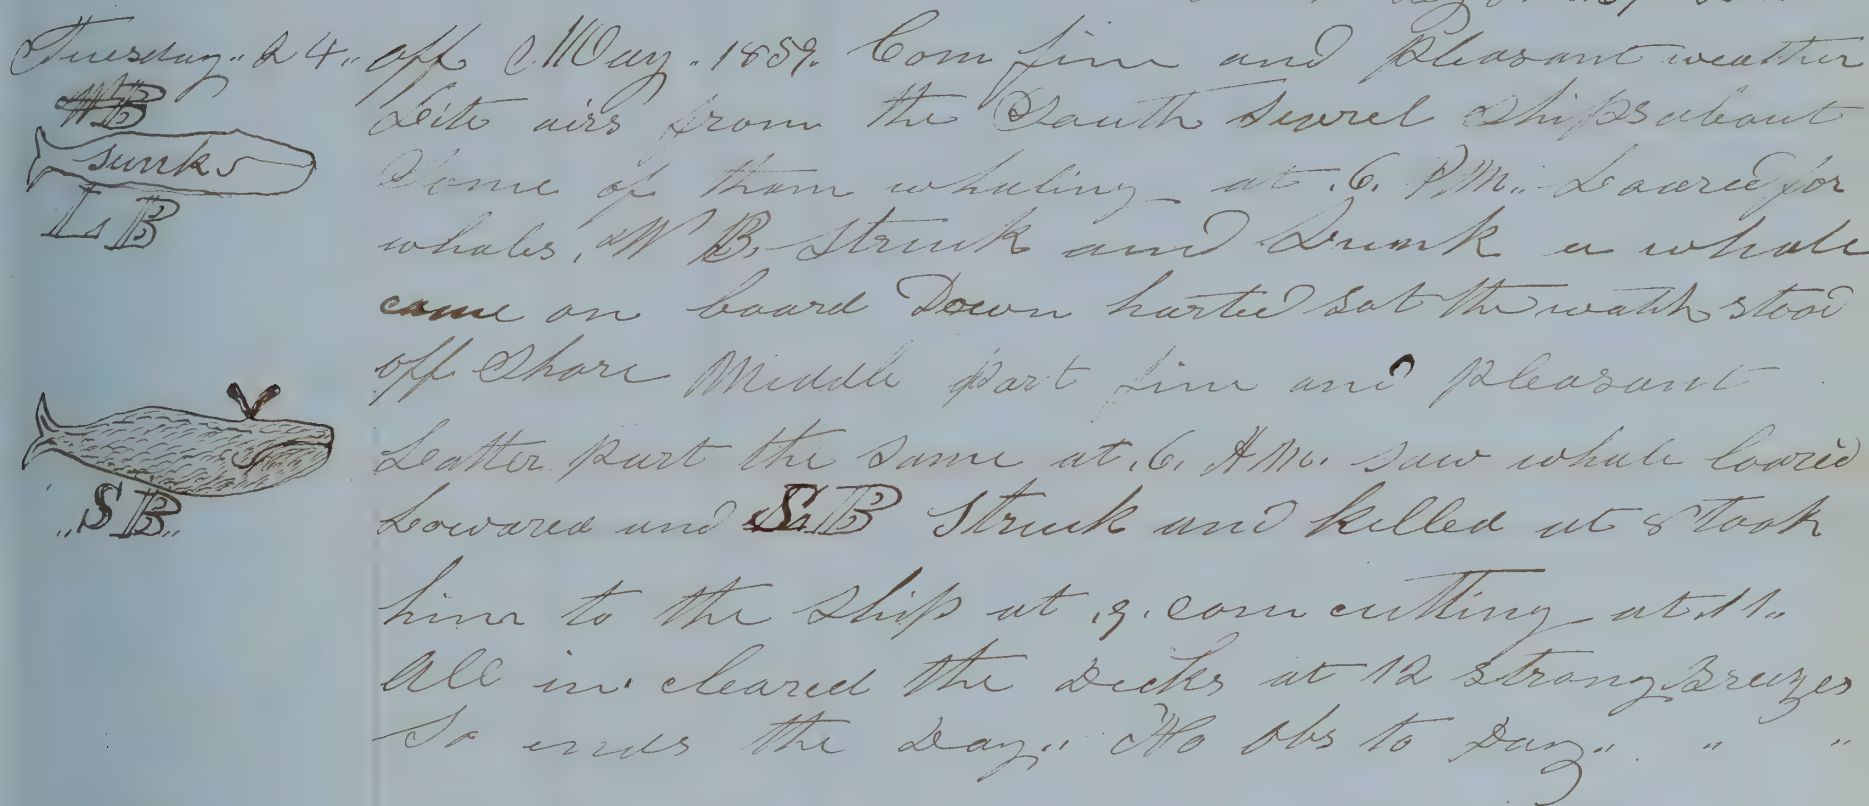 Tuesday" 24" off May. 1859. Com fine and Pleasant weather
WB
Lite airs from the South severel Ships about
sunk
Some of them whaling at .6. PM. Loared for
LB
whales, W B. Struck and Sunk a whale
came on board Down harted Sat the watch stood
off Shore Middle Part fine and pleasant
Latter part the same at .6. AM. saw whale loared
Lowared and SB Struck and killed at 8 took
"SB"
him to the Ship at .9. com cutting at 11.
all in. cleared the Decks at 12 strong Breezes
So ends the Day" No Obs to Day" " "